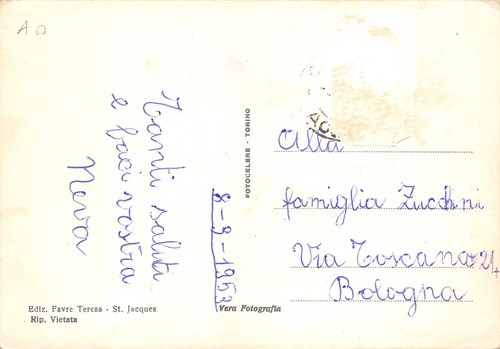 AD
Tanti saluti
e baci vostra
Neva
8-9-1953
FOTOCELERE - TORINO
Alla
famiglia Zucchini
Via Toscana 21/4
Bologna
Ediz. Favre Teresa - St. Jacques
Rip. Vietata
Vera Fotografia